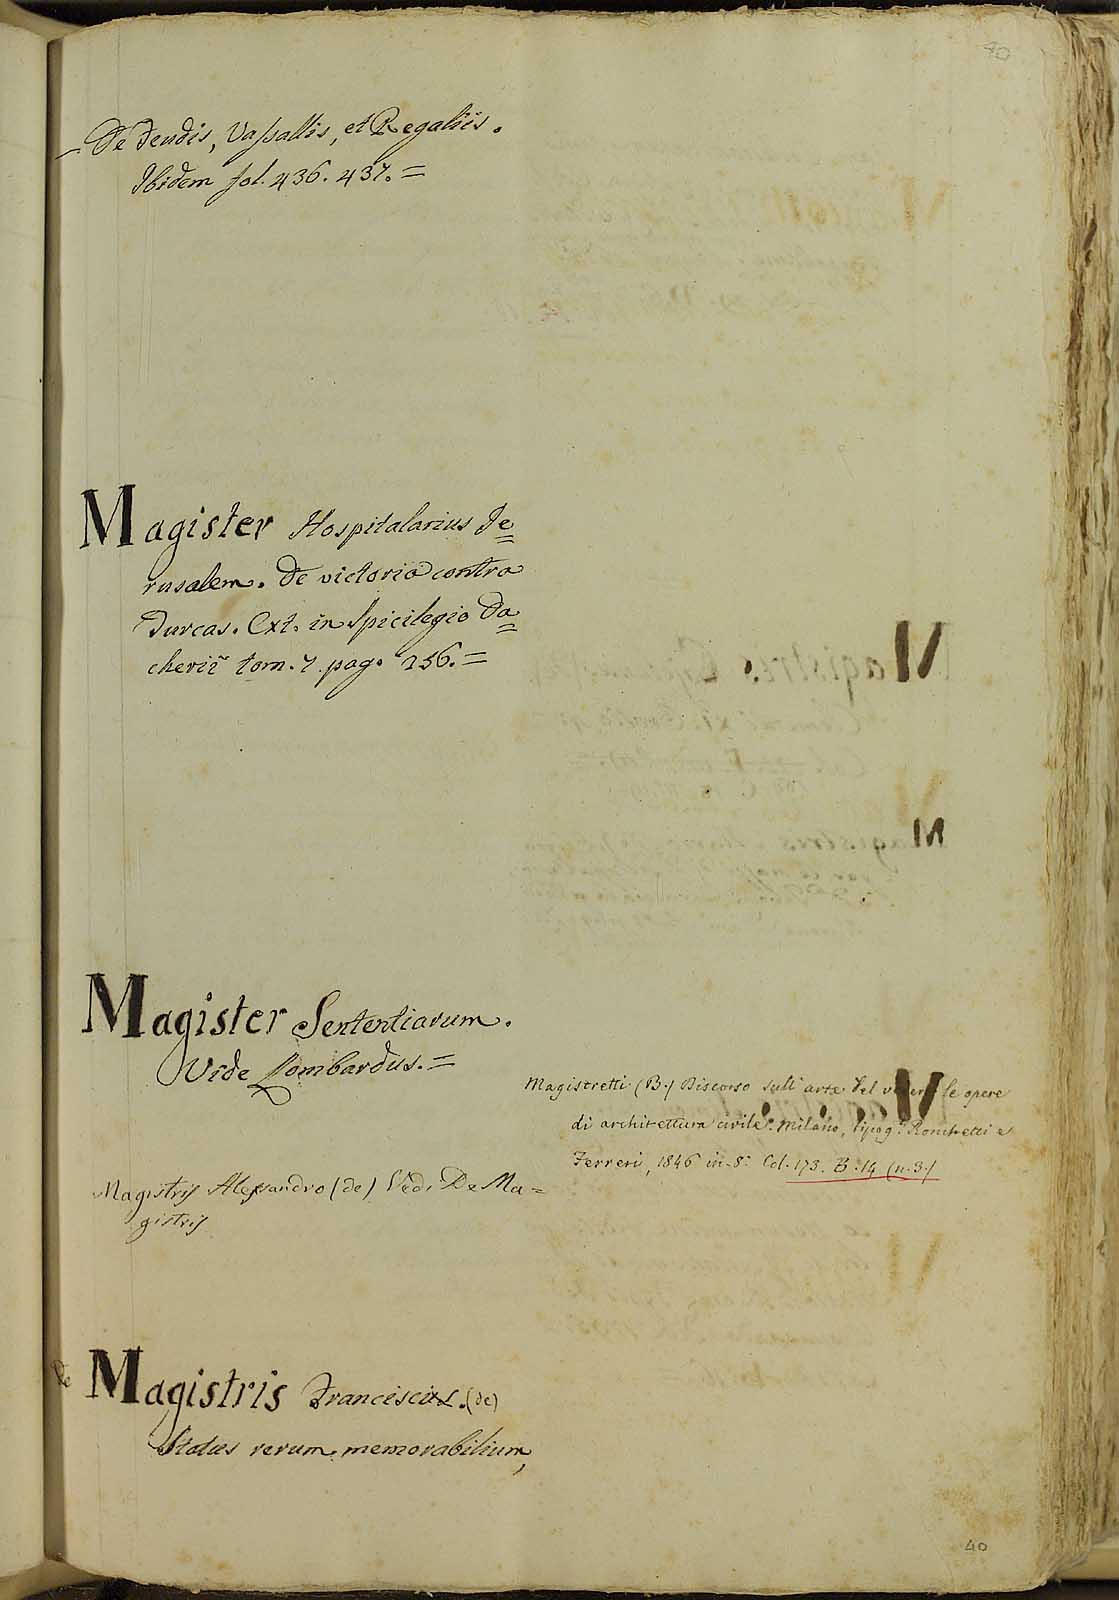 40
– De Feudis, Vassallis, et Regaliis.
Ibidem fol. 436. 437. =
Magister Hospitalarius Je=
rusalem. De victoria contra
Turcas. Ext. in Spicilegio Da=
cherii tom. 7 pag. 256. =
Magister Sententiarum.
Vide Lombardus. =
Magistretti (B.) Discorso sull' arte del vedere le opere
di architettura civile. Milano, tipog. Ronchetti e
Ferreri, 1846 in-8° Col. 173. B. 14 (n. 3.)
Magistris Alessandro (de) Ved. De Ma=
gistris
de Magistris Franciscus. (de)
Status rerum memorabilium,
40